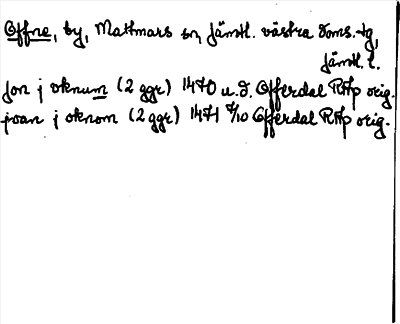 Offne, by, Mattmars sn, Jämtl. västra doms.-tg,
Jämtl. l.
jon j oknum (2 ggr) 1470 u.d. Offerdal RAp orig.
joan j oknom (2 ggr) 1471 7/10 Offerdal RAp orig.